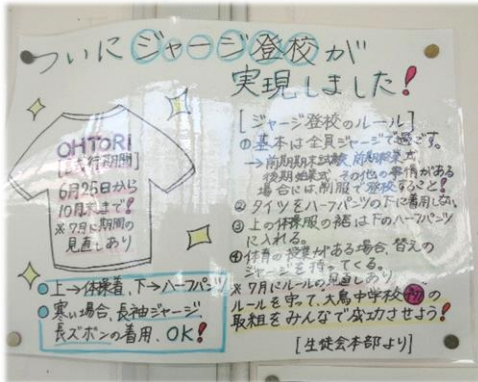 ついにジャージ登校が
実現しました!
OHTORI
[試行期間]
6月25日から
10月末まで!
※7月に期間の
見直しあり
●上→体操着、下→ハーフパンツ
●寒い場合、長袖ジャージ
長ズボンの着用、OK!
[ジャージ登校のルール]
①基本は全員ジャージで過ごす。
→前期期末試験 前期終業式
後期始業式 その他の事情がある
場合には、制服で登校すること!
②タイツをハーフパンツの下に着用しない
③上の体操服の裾は下のハーフパンツ
に入れる。
④体育の授業がある場合、替えの
ジャージを持ってくる。
※7月にルールの見直しあり
ルールを守って、大鳥中学校の
取組をみんなで成功させよう!
[生徒会本部より]